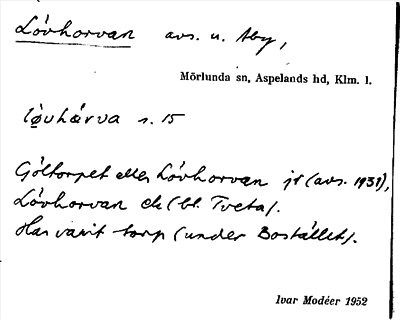 Lövhorvan avs. u. Åby,
Mörlunda sn, Aspelands hd, Klm. l.
löuhárva s. 15
Göltorpet eller Lövhorvan jr (avs. 1931),
Lövhorvan ek (bl. Tveta).
Har varit torp (under Bostället).
Ivar Modéer 1952